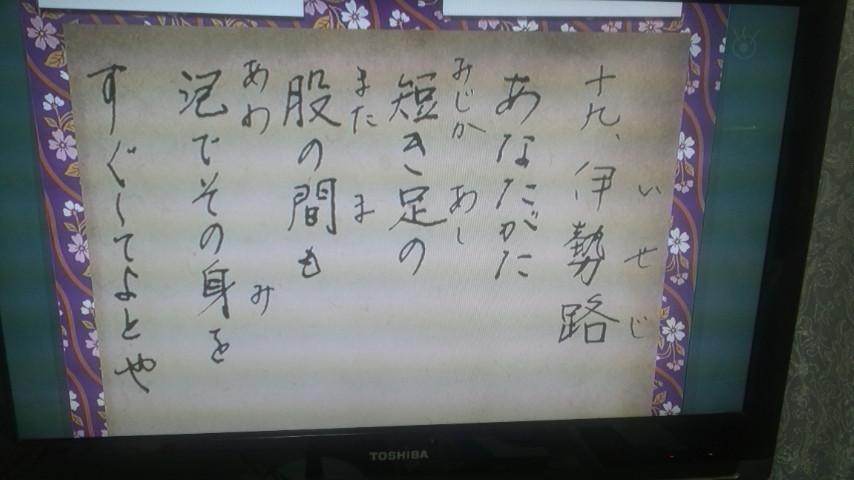 十九、伊勢路
いせじ
あなたがた
短き足の
みじか あし
股の間も
また ま
泡でその身を
あわ み
すぐしてよとや
TOSHIBA